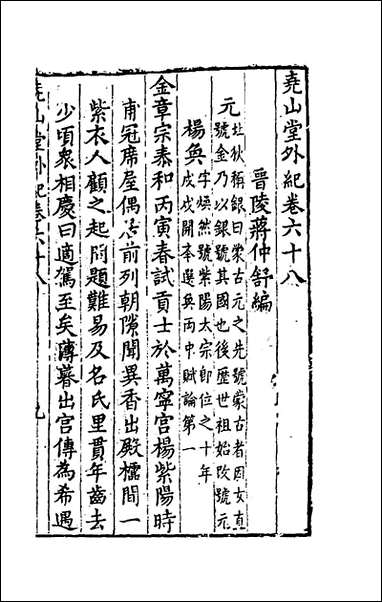 堯山堂外紀卷六十八
晉陵蔣仲舒編
元
北狄稱銀曰蒙古元之先號蒙古者因女真
號金乃以銀號其國也後歷世祖始改號元
楊奐
字煥然號紫陽太宗卽位之十年
戊戌開本選奐兩中賦論第一
金章宗泰和丙寅春試貢士於萬寧宮楊紫陽時
甫冠席屋偶居前列朝隙聞異香出殿櫺間一
紫衣人顧之起問題難易及名氏里貫年齒去
少頃衆相慶曰適駕至矣薄暮出宮傳為希遇
堯山堂外紀卷六十八